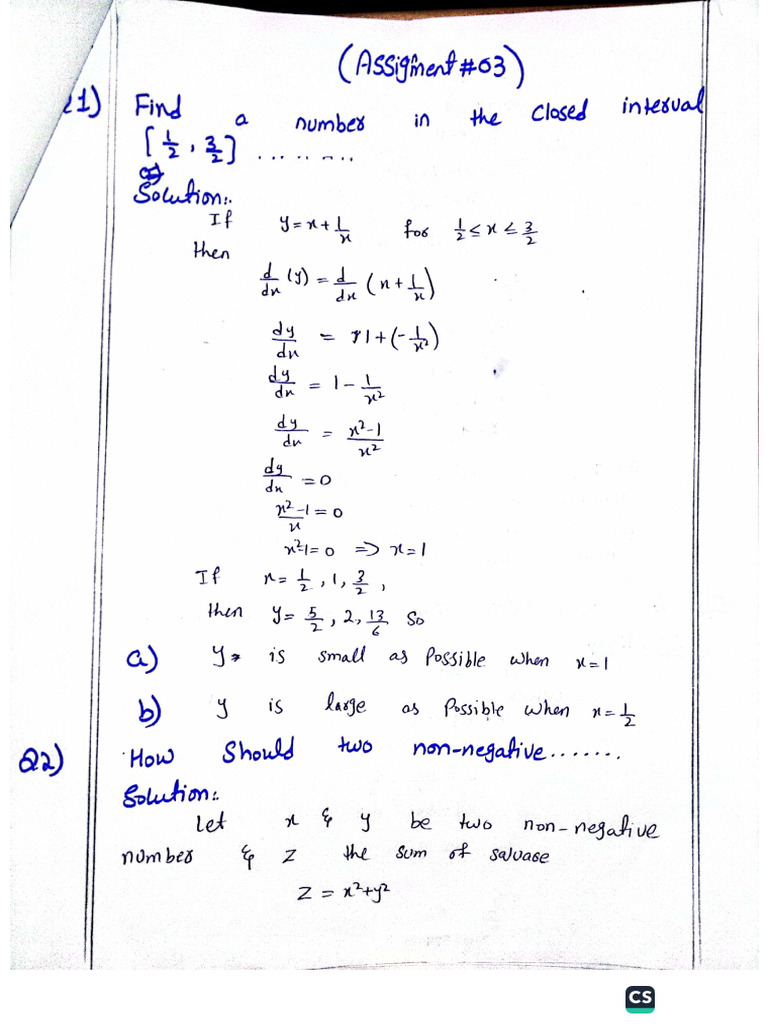 (Assigment #03)
21) Find a number in the closed interval
[1/2, 3/2] .........
Solution:.
If y = x + 1/x for 1/2 ≤ x ≤ 3/2
then
d/dx (y) = d/dx (x + 1/x)
dy/dx = 1 + (-1/x²)
dy/dx = 1 - 1/x²
dy/dx = x²-1/x²
dy/dx = 0
x²-1/x = 0
x²-1 = 0 => x = 1
If x = 1/2, 1, 3/2,
then y = 5/2, 2, 13/6 So
a) y is small as possible when x = 1
b) y is large as possible when x = 1/2
Q2) How should two non-negative.......
Solution:.
Let x & y be two non-negative
number & z the sum of
z = x² + y²
CS